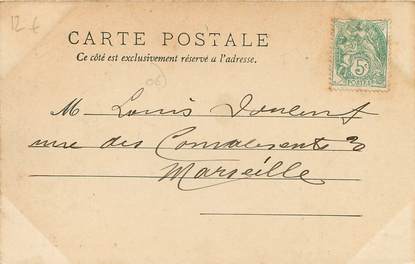 12 €
CARTE POSTALE
Ce côté est exclusivement réservé a l'adresse.
5c
POSTES
(06)
M. Louis
rue des Convalescents
Marseille